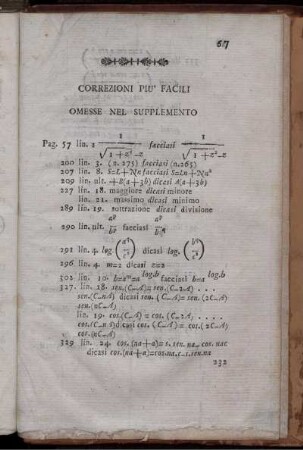 617
CORREZIONI PIU' FACILI
OMESSE NEL SUPPLEMENTO
Pag. 57 lin. 1 1/√(1+z²-z) facciasi 1/√(1+z²-z)
200 lin. 3. (n.275) facciasi (n.265)
207 lin. 8. S=L+Nn facciasi S=Ln+Nn²
209 lin. ult. +B(a+3b) dicasi A(a+3b)
227 lin. 18. maggiore dicasi minore
lin. 21. massimo dicasi minimo
289 lin. 19. sottrazione dicasi divisione
290 lin. ult. facciasi
291 lin. 4. log dicasi log.
296 lin. 4. m=2 dicasi z=2
lin. 10. facciasi
327. lin. 18. sen.(C-A) = sen.(C-2A) . . . .
sen.(C-nA) dicasi sen.(C-A) = sen.(2C-A)
sen.(nC-A)
lin. 19. cos.(C-A) = cos.(C-2A) . . . .
cos.(C-nA) dicasi cos.(C-A) = cos.(2C-A)
cos.(nC-A)
329 lin. 24. cos.(na+a)=s.sen.na- cos.nac
dicasi cos.(na+a)=cos.na.c-s.sen.na
232